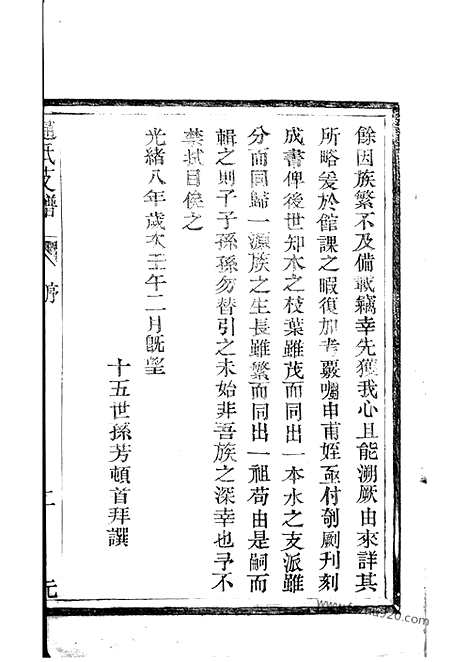 餘因族繁不及備載竊幸先獲我心且能溯厥由來詳其
所略爰於館課之暇復加考覈囑申甫姪亟付剞劂刋刻
成書俾後世知木之枝葉雖茂而同出一本水之支派雖
分而同歸一源族之生長雖繁而同出一祖苟由是嗣而
輯之則子子孫孫勿替引之未始非吾族之深幸也予不
禁拭目俟之
光緒八年歲次壬午二月旣望
十五世孫芳頓首拜譔
氏支譜
序
二
元